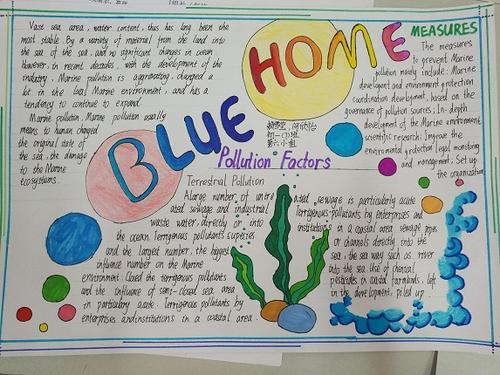 BLUE HOME
Vast sea area, water content, thus has long been the
most stable. By a variety of material from the land into
the sea of the sea, and no significant changes in ocean
However, in recent decades, with the development of the
industry, Marine pollution is aggravating, changed a
lot in the local Marine environment, and has a
tendency to continue to expand.
Marine pollution, Marine pollution usually
means to human changed
the original state of
the sea, the damage
to the Marine
ecosystems.
MEASURES
The measures
to prevent Marine
pollution mainly include: Marine
development and environment protection
coordination development, based on the
governance of pollution sources; In-depth
development of the Marine environment
scientific research; Improve the
environmental protection legal monitoring
and management; Set up
the organization
Pollution Factors
Terrestrial Pollution
A large number of untr
eated sewage and industrial
waste water, directly or into
the ocean. Terrigenous pollutants
and the largest number, the biggest
influence number on the Marine
environment. Closed the terrigenous pollutants
and the influence of semi-closed sea area
in particularly acute. Terrigenous pollutants by
enterprises and institutions in a coastal area.
eated sewage is particularly acute
Terrigenous pollutants by enterprises and
institutions in a coastal area, sewage pipes
or channels directly into the
sea, the way such as river
into the sea. Use of chemical
pesticides in coastal farmlands, left
in the development, piled up.